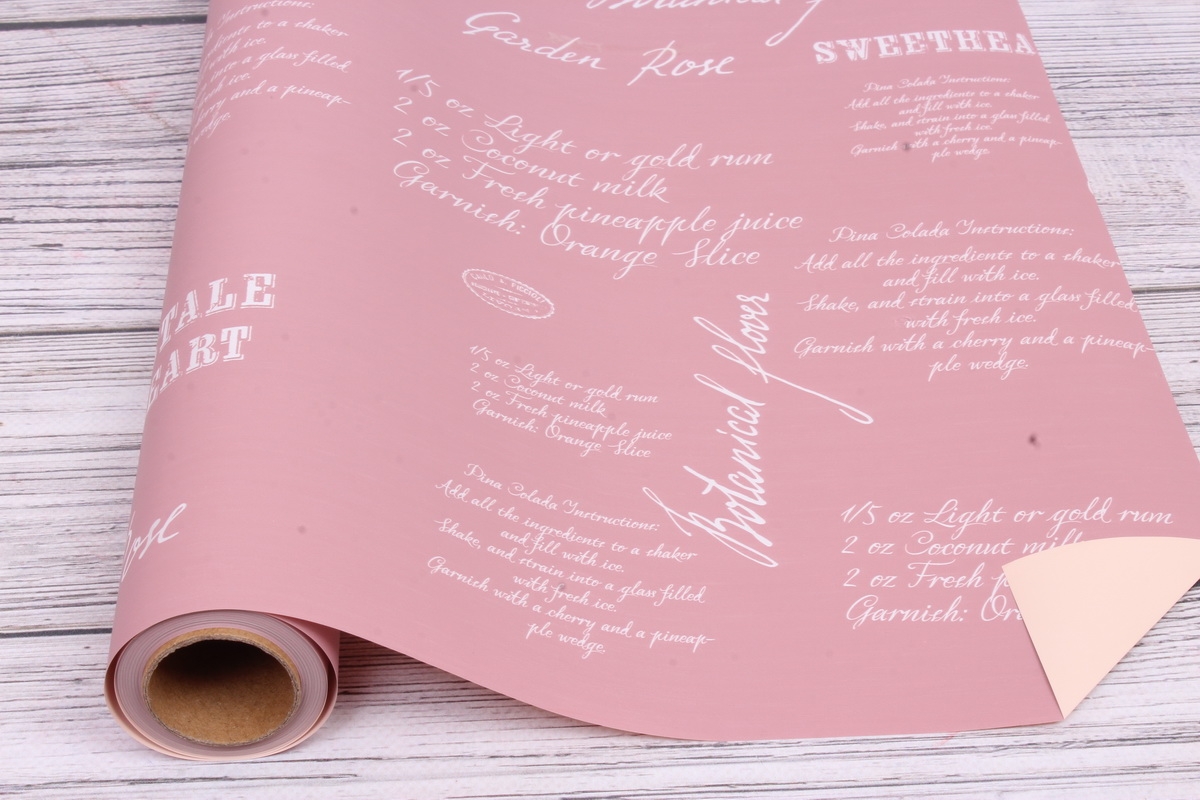 Instructions:
dients to a shaker
with ice.
into a glass filled
ice.
rry and a pineap-
wedge.
TALE
EART
Botanical
Garden Rose
1/5 oz Light or gold rum
2 oz Coconut milk
2 oz Fresh pineapple juice
Garnish: Orange Slice
1/5 oz Light or gold rum
2 oz Coconut milk
2 oz Fresh pineapple juice
Garnish: Orange Slice
Pina Colada Instructions:
Add all the ingredients to a shaker
and fill with ice.
Shake, and strain into a glass filled
with fresh ice.
Garnish with a cherry and a pineap-
ple wedge.
Botanical flover
SWEETHEA
Pina Colada Instructions:
Add all the ingredients to a shaker
and fill with ice.
Shake, and strain into a glass filled
with fresh ice.
Garnish with a cherry and a pineap-
ple wedge.
Pina Colada Instructions:
Add all the ingredients to a shaker
and fill with ice.
Shake, and strain into a glass filled
with fresh ice.
Garnish with a cherry and a pineap-
ple wedge.
1/5 oz Light or gold rum
2 oz Coconut milk
2 oz Fresh p
Garnish: Or